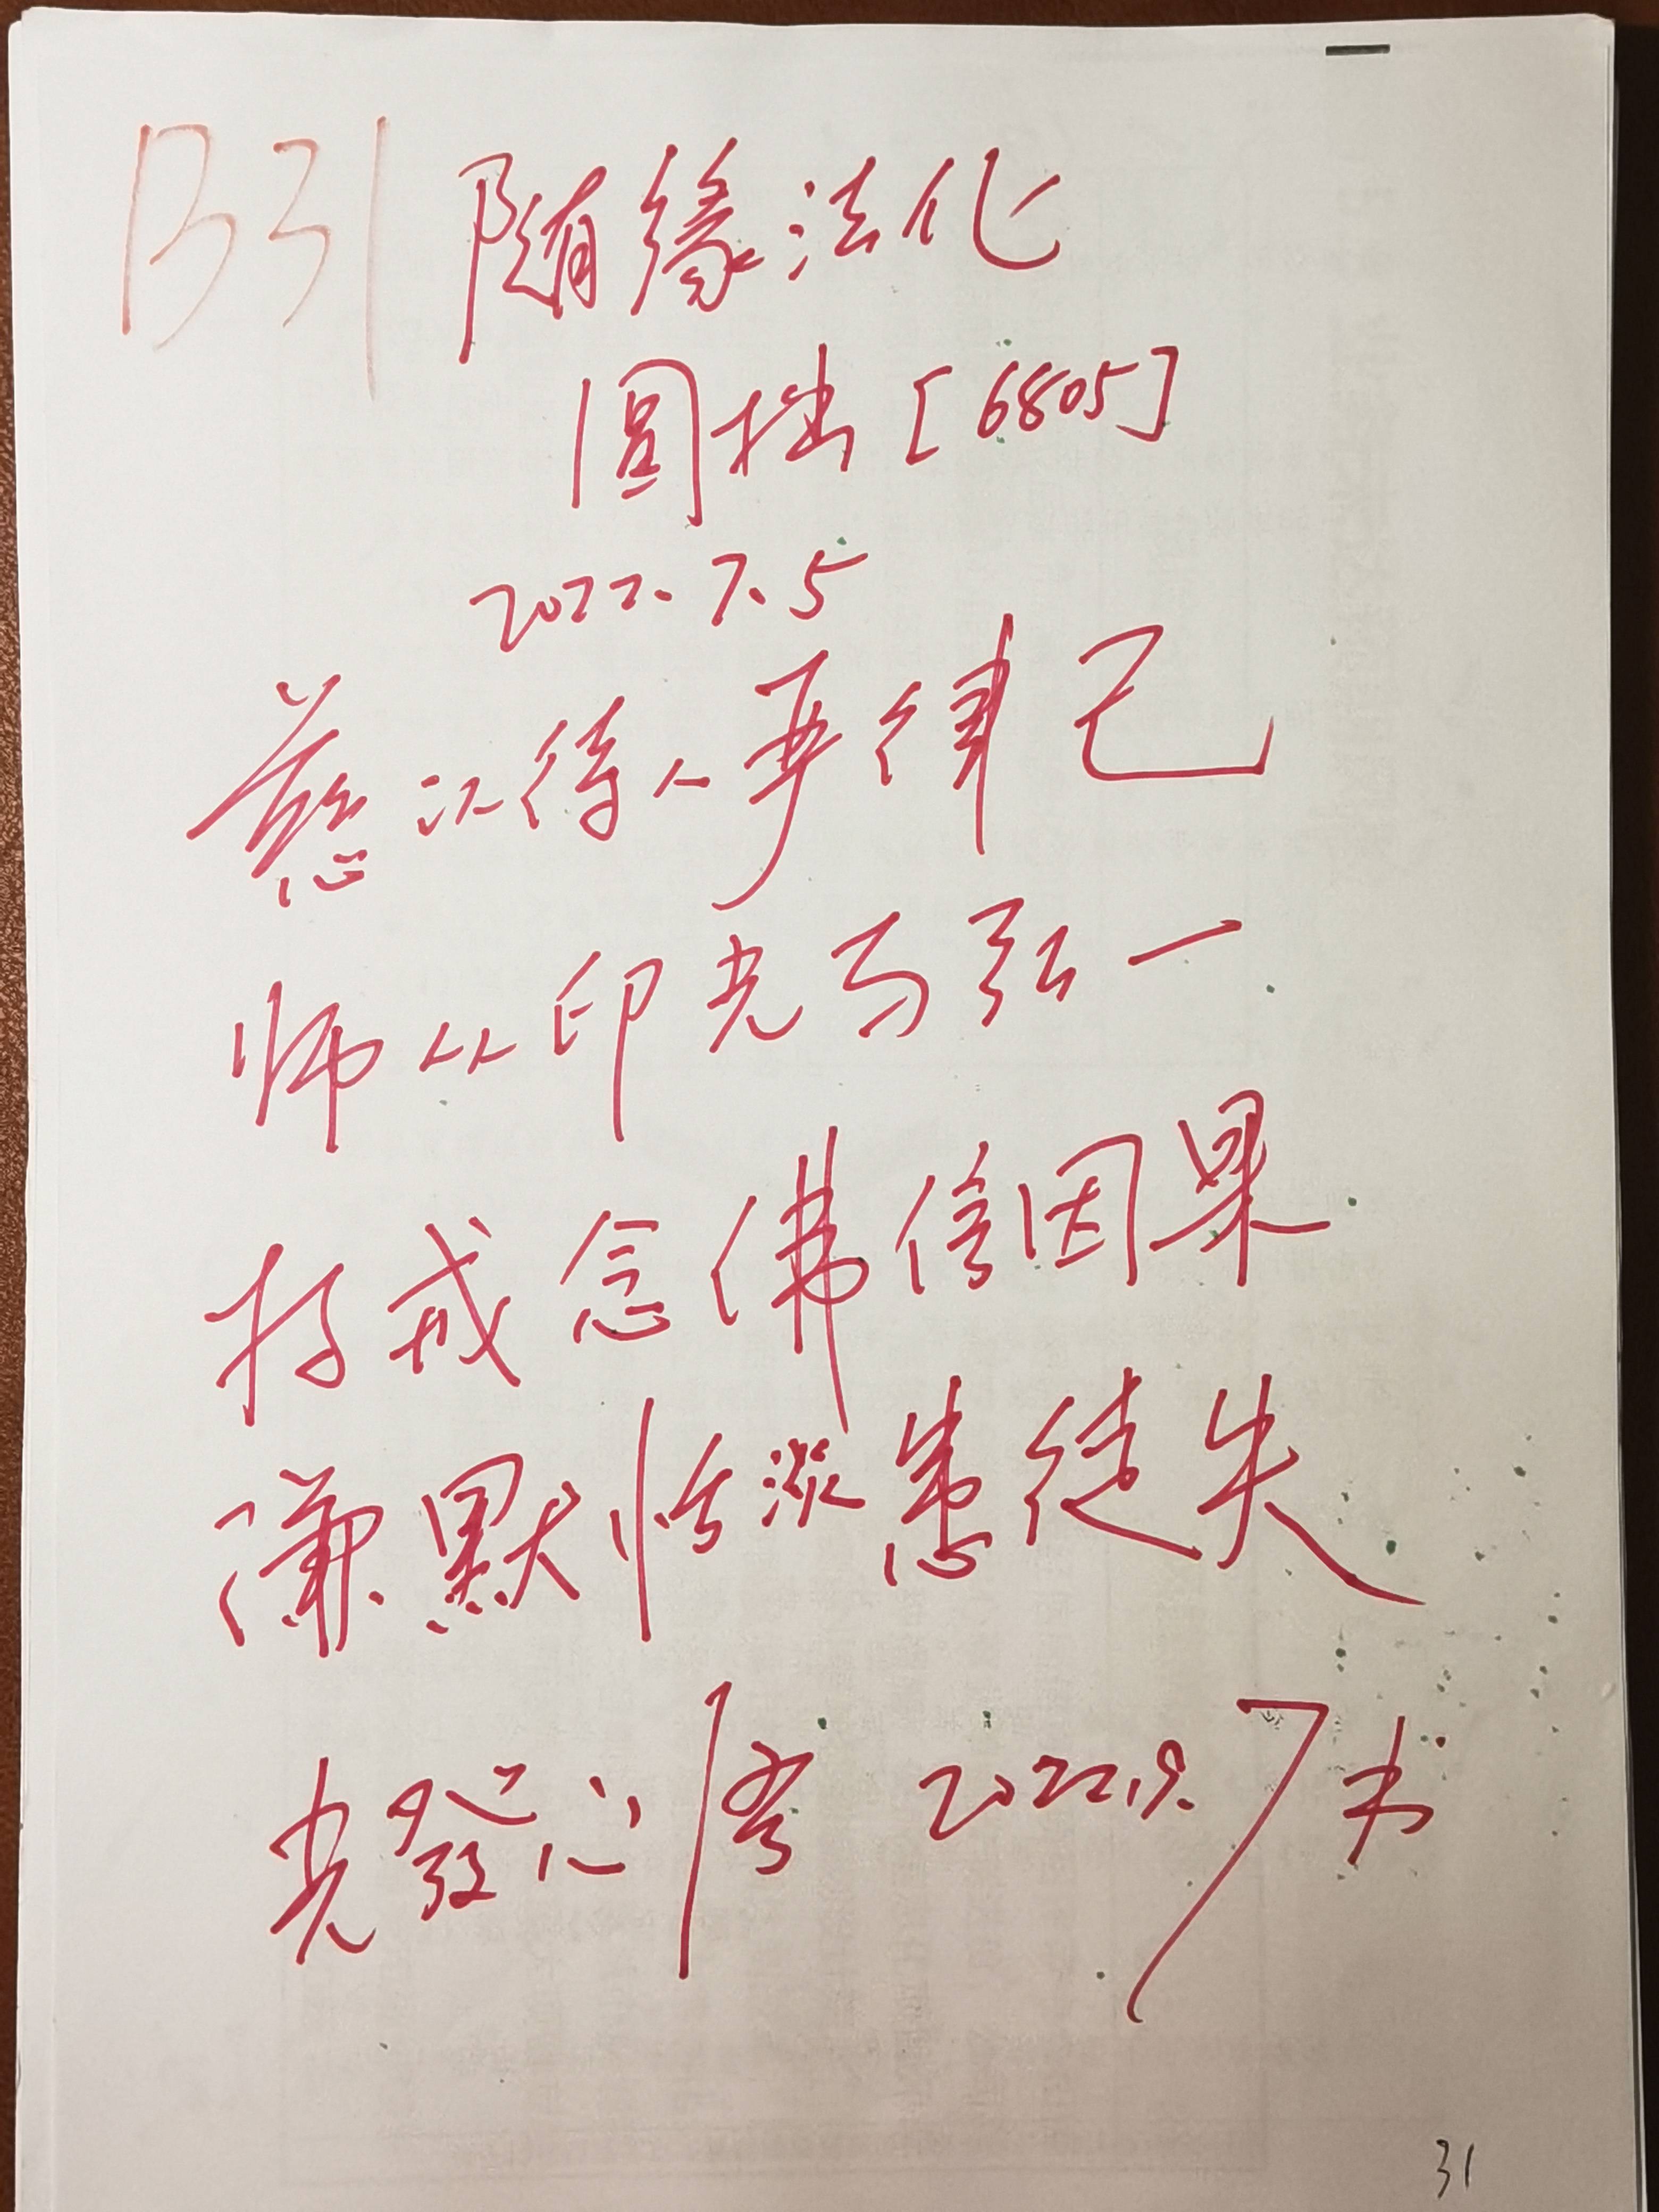 B31 随缘法化
圆拙[6805]
2022.7.5
慈以待人要律己
师从印光与弘一
持戒念佛信因果
谦默恬淡患徒失
光發心悟 2022.9.7书
31